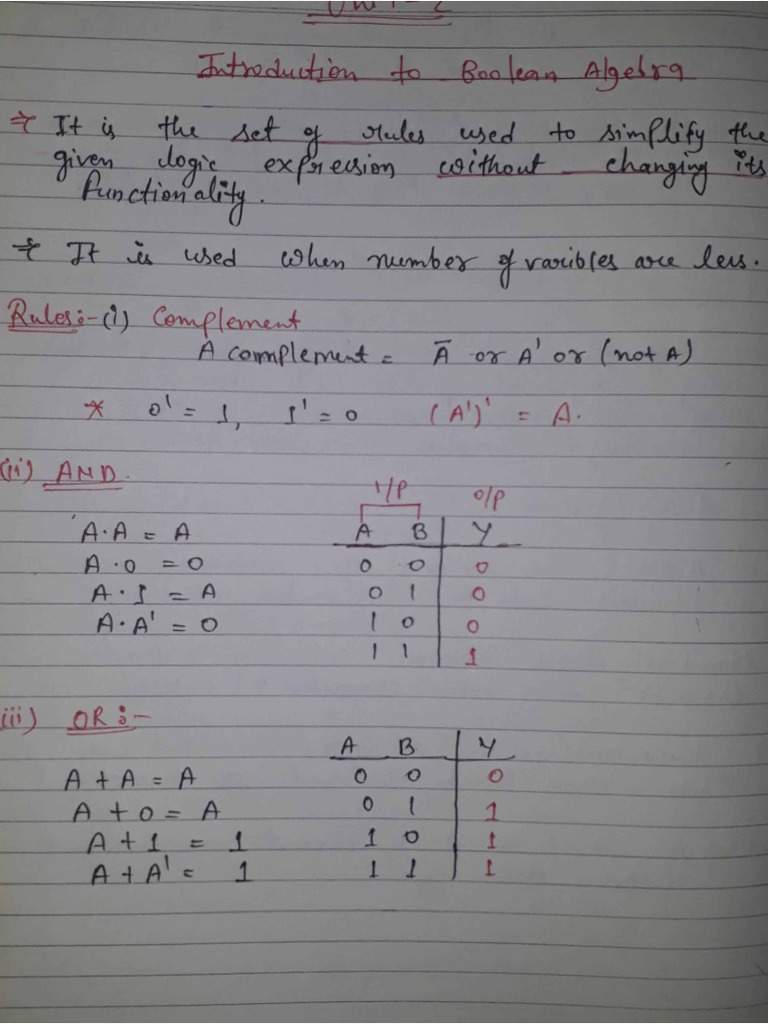 Unit - 2
Introduction to Boolean Algebra
→ It is the set of rules used to simplify the
given logic expression without changing its
functionality.
→ It is used when number of varibles are less.
Rules:- (i) Complement
A complement = Ā or A' or (not A)
* 0' = 1, 1' = 0 (A')' = A.
(ii) AND.
I/P O/P
A B Y
A·A = A
A·0 = 0 0 0 0
A·1 = A 0 1 0
A·A' = 0 1 0 0
1 1 1
iii) OR :-
A B Y
A + A = A 0 0 0
A + 0 = A 0 1 1
A + 1 = 1 1 0 1
A + A' = 1 1 1 1